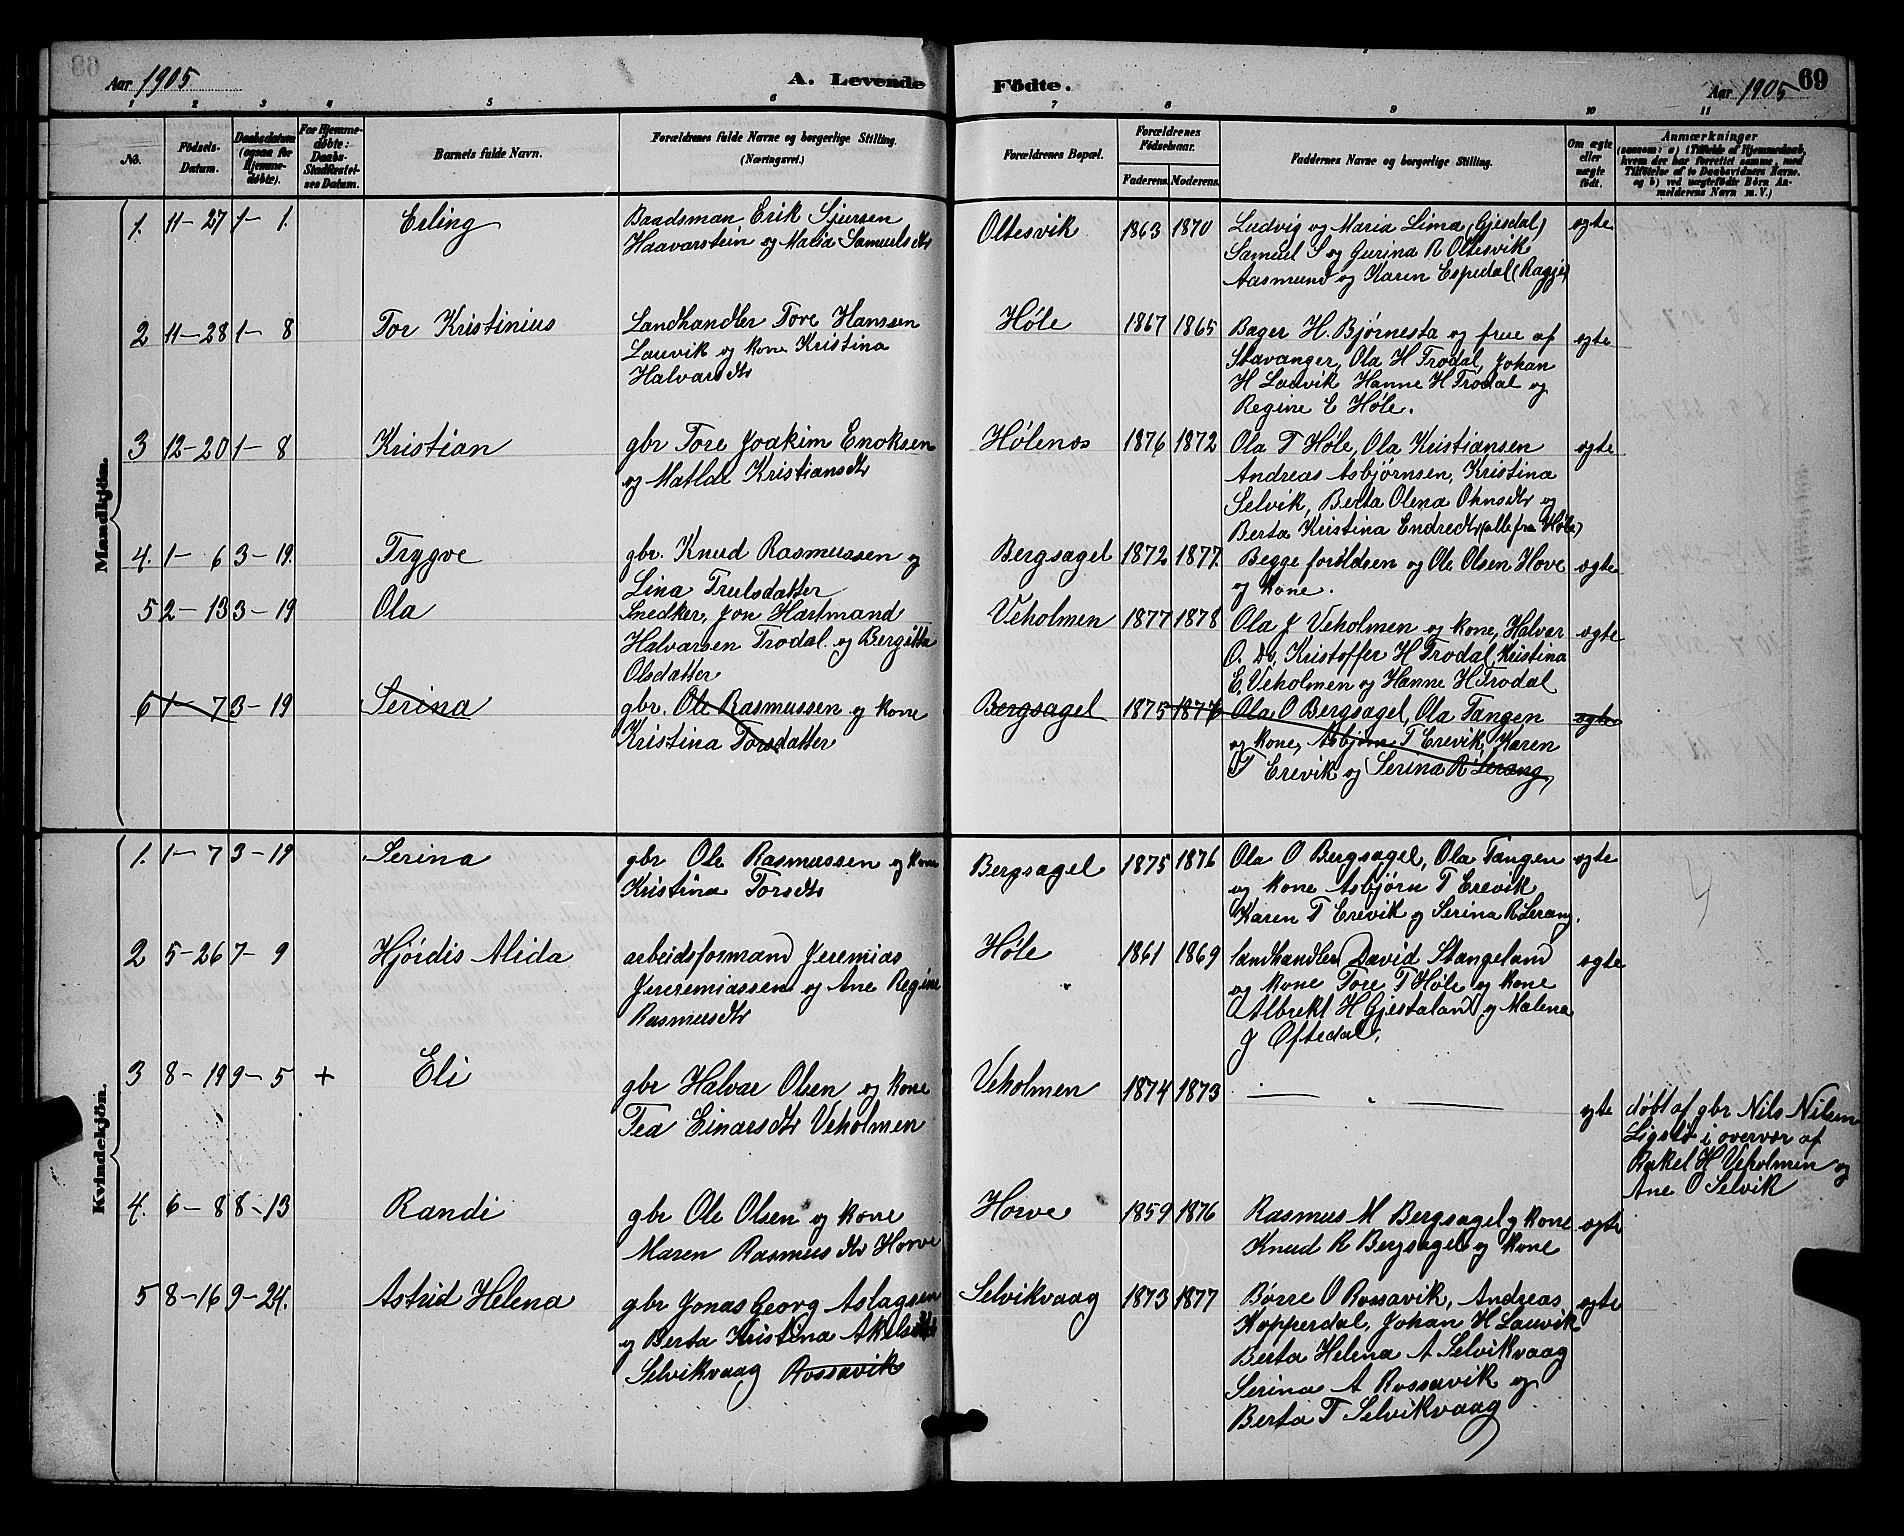 Aar 1905
A. Levende
Födte.
Aar 1905
69
1 2 3 4 5 6 7 8 9 10 11
No.
Födsels-Datum.
Daabsdatum (ogsaa for Hjemme-döbte).
For Hjemme-döbte: Daabs-Stadfæstel-ses Datum.
Barnets fulde Navn.
Forældrenes fulde Navne og borgerlige Stilling. (Næringsvei.)
Forældrenes Bopæl.
Forældrenes Födselsaar.
Faderens. Moderens.
Faddernes Navne og borgerlige Stilling.
Om ægte eller uægte födt.
Anmærkninger
(saasom: a) i Tilfælde af Hjemmedaab,
hvem der har forrettet samme, med
Tilföielse af to Daabsvidners Navne.
og b) ved uægtefödte Börn An-
melderens Navn m. V.)
Mandkjön.
1. 11-27 1-1. Erling
Baadsman Erik Sjursen
Haavarstein og Malia Samuelsdtr
Oltesvik 1863 1870
Ludvig og Maria Lima (Gjesdal)
Samuel S og Gurina R Oltesvik
Aasmund og Karen Espedal (Ragje)
ægte
2 11-28 1-8 Tor Kristinius
Landhandler Tore Hanssen
Lauvik og kone Kristina
Halvarsdtr
Høle 1867 1865
Bager H. Bjørnesta og frue af
Stavanger, Ola H Trodal, Johan
H Lauvik Hanne H Trodal og
Regine E Høle.
ægte
3 12-20 1-8 Kristian
gbr Tore Joakim Enoksen
og Matlde Kristiansdtr
Hølenes 1876 1872
Ola T Høle, Ola Kristiansen
Andreas Asbjørnsen, Kristina
Selvik, Berta Olena Ohnsdtr og
Berta Kristina Endredtr (alle fra Høle)
ægte
4. 1-6 3-19. Trygve
gbr. Knud Rasmussen og
Lina Trulsdatter
Bergsagel 1872 1877.
Begge foreldsen og Ole Olsen Hove
og kone.
ægte
5 2-13 3-19 Ola
Snedker, Jon Hartmand
Halvarsen Trodal og Bergitta
Olsdatter
Veholmen 1877 1878
Ola J Veholmen og kone, Halvar
O. Do, Kristoffer H Trodal, Kristina
E. Veholmen og Hanne H Trodal
ægte
6 1-7 3-19 Serina
gbr. Ole Rasmussen og kone
Kristina Torsdatter
Bergsagel 1875 1876
Ola O Bergsagel, Ola Tangen
og kone, Asbjørn T Erevik, Karen
T Erevik og Serina R Lerang,
ægte
Kvindekjön.
1. 1-7 3-19 Serina
gbr Ole Rasmussen og kone
Kristina Torsdtr
Bergsagel 1875 1876
Ola O Bergsagel, Ola Tangen
og kone Asbjørn T Erevik
Karen T Erevik og Serina R Lerang.
ægte
4
2 5-26 7-9 Hjørdis Alida
arbeidsformand Jeremias
Jereremiassen og Ane Regine
Rasmusdtr
Høle 1861 1869
Landhandler David Stangeland
og kone Tore T Høle og kone
Albrekt H Gjestaland og Malena
J Oftedal.
ægte
3 8-19 9-5 + Eli
gbr Halvar Olsen og kone
Tea Einarsdtr Veholmen
Veholmen 1874 1873
ægte
døbt af gbr Nils Nilsen
Ligstø i overvær af
Rakel H Veholmen og
Ane O Selvik
4. 6-8 8-13 Randi
gbr Ole Olsen og kone
Maren Rasmusdtr Horve
Horve 1859 1876
Rasmus M Bergsagel og kone
Knud R Bergsagel og kone
ægte
5 8-16 9-24. Astrid Helena
gbr Jonas Georg Aslagsen
og Berta Kristina Akelsdtr
Selvikvaag Rossavik
Selvikvaag 1873 1877
Børre O Rossavik, Andreas
Kopperdal, Johan H Lauvik
Berta Helena A Selvikvaag
Serina A Rossavik og
Berta T Selvikvaag
ægte